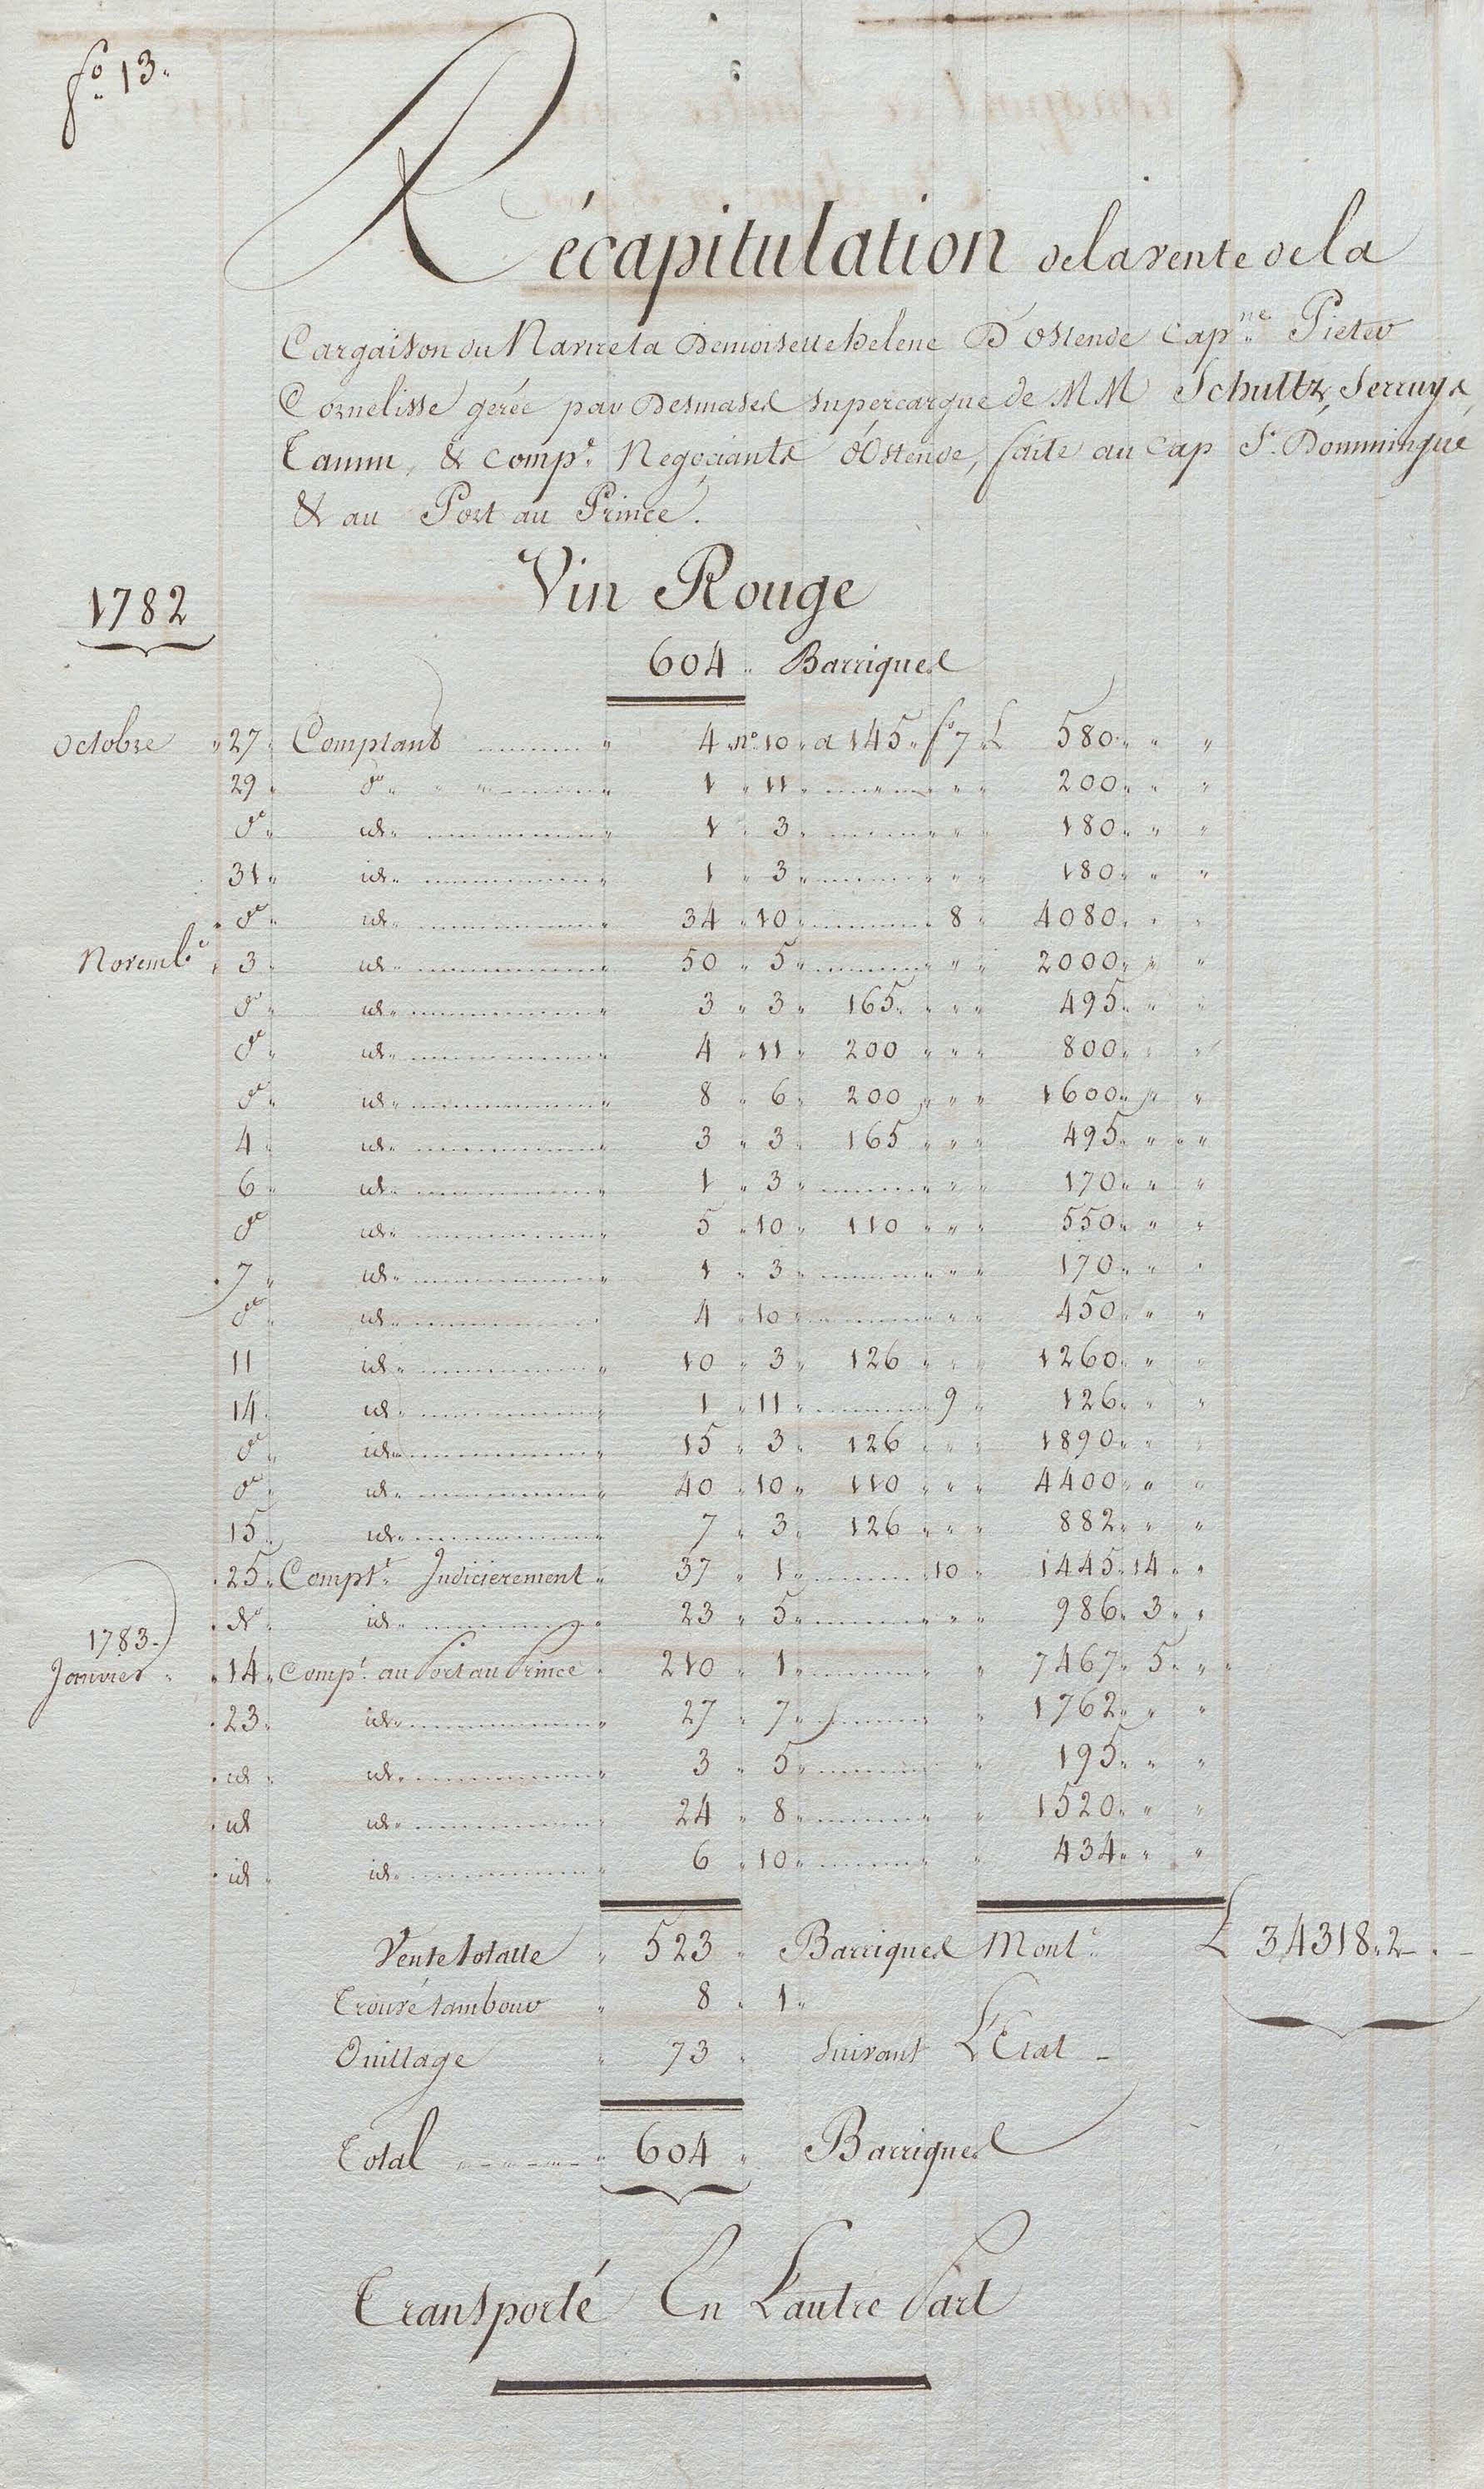 fo 13.
Récapitulation de la vente de la
Cargaison du Navire la Demoiselle helene D'ostende Capne Pieter
Cornelisse gérée par Desmasel supercargue de MM Schultz, Serruys,
Tamm, & compe Negociants d'Ostende, faite au Cap St Dommingue
& au Port au Prince.
Vin Rouge
1782
604 .. Barriques
Octobre 27 Comptant 4 no 10 a 145 fo 7 L 580
29 do 1 11 200
do id 1 3 180
31 id 1 3 180
do id 34 10 8 4080
Novembe 3 id 50 5 2000
do id 3 3 165 495
do id 4 11 200 800
do id 8 6 200 1600
4 id 3 3 165 495
6 id 1 3 170
do id 5 10 110 550
7 id 1 3 170
do id 4 10 450
11 id 10 3 126 1260
14 id 1 11 9 126
do id 15 3 126 1890
do id 40 10 110 4400
15 id 7 3 126 882
25 Compt Judicierement 37 1 10 1445 14
do id 23 5 986 3
1783.
Janvier 14 Compt au Port au Prince 210 1 7467 5
23 id 27 7 1762
id id 3 5 195
id id 24 8 1520
id id 6 10 434
Vente totalle 523 Barriques Monte L 34318.2
Trouvé tambour 8 1
Ouillage 73 Suivant L'Etat
Total 604 Barriques
Transporté En L'autre Part